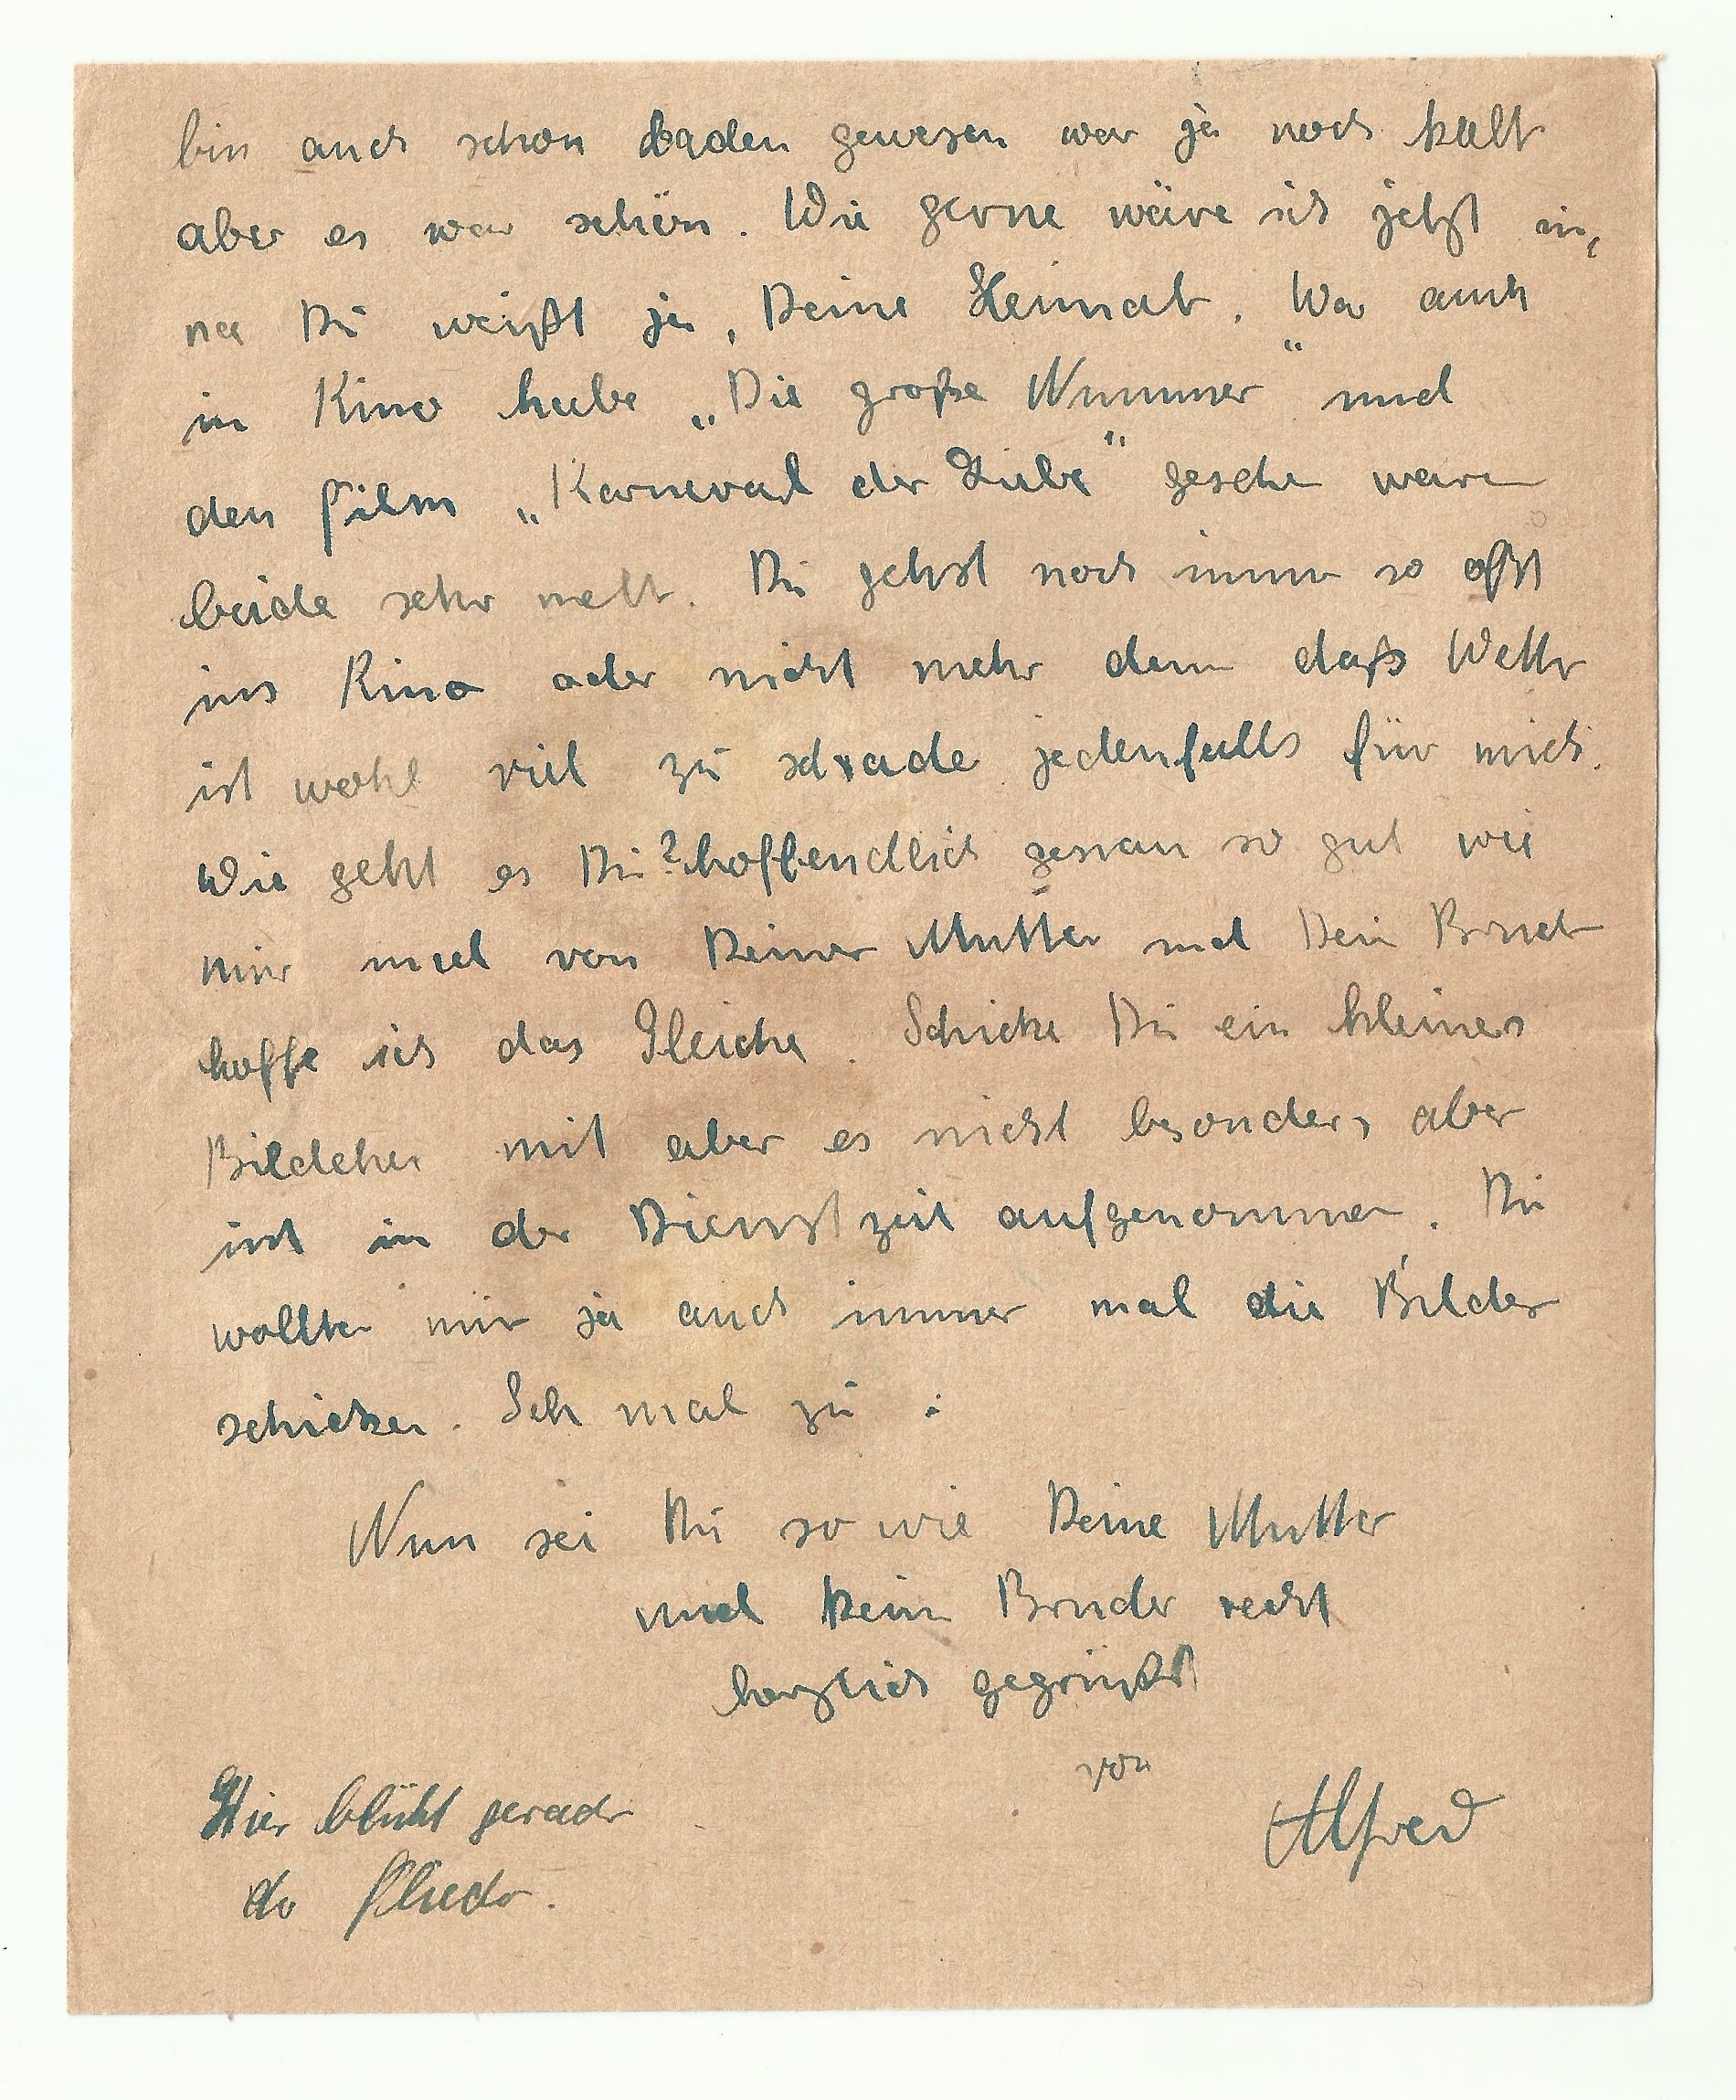 bin auch schon baden gewesen war ja noch kalt
aber es war schön. Wie gerne wäre ich jetzt in,
na Du weißt ja, Deine Heimat. War auch
in Kino habe „Die große Nummer" und
den Film „Karneval der Liebe" gesehen waren
beide sehr nett. Du gehst noch immer so oft
ins Kino oder nicht mehr denn daß Wetter
ist wohl viel zu schade jedenfalls für mich.
Wie geht es Dir? hoffendlich genau so gut wie
mir und von Deiner Mutter und Dein Bruder
hoffe ich das Gleiche. Schicke Dir ein kleines
Bildchen mit aber es nicht besonders aber
ist in der Dienstzeit aufgenommen. Du
wolltest mir ja auch immer mal die Bilder
schicken. Seh mal zu.
Nun sei Du so wie Deine Mutter
und Dein Bruder recht
herzlich gegrüßt
von
Alfred
Hier blüht gerade
der Flieder.